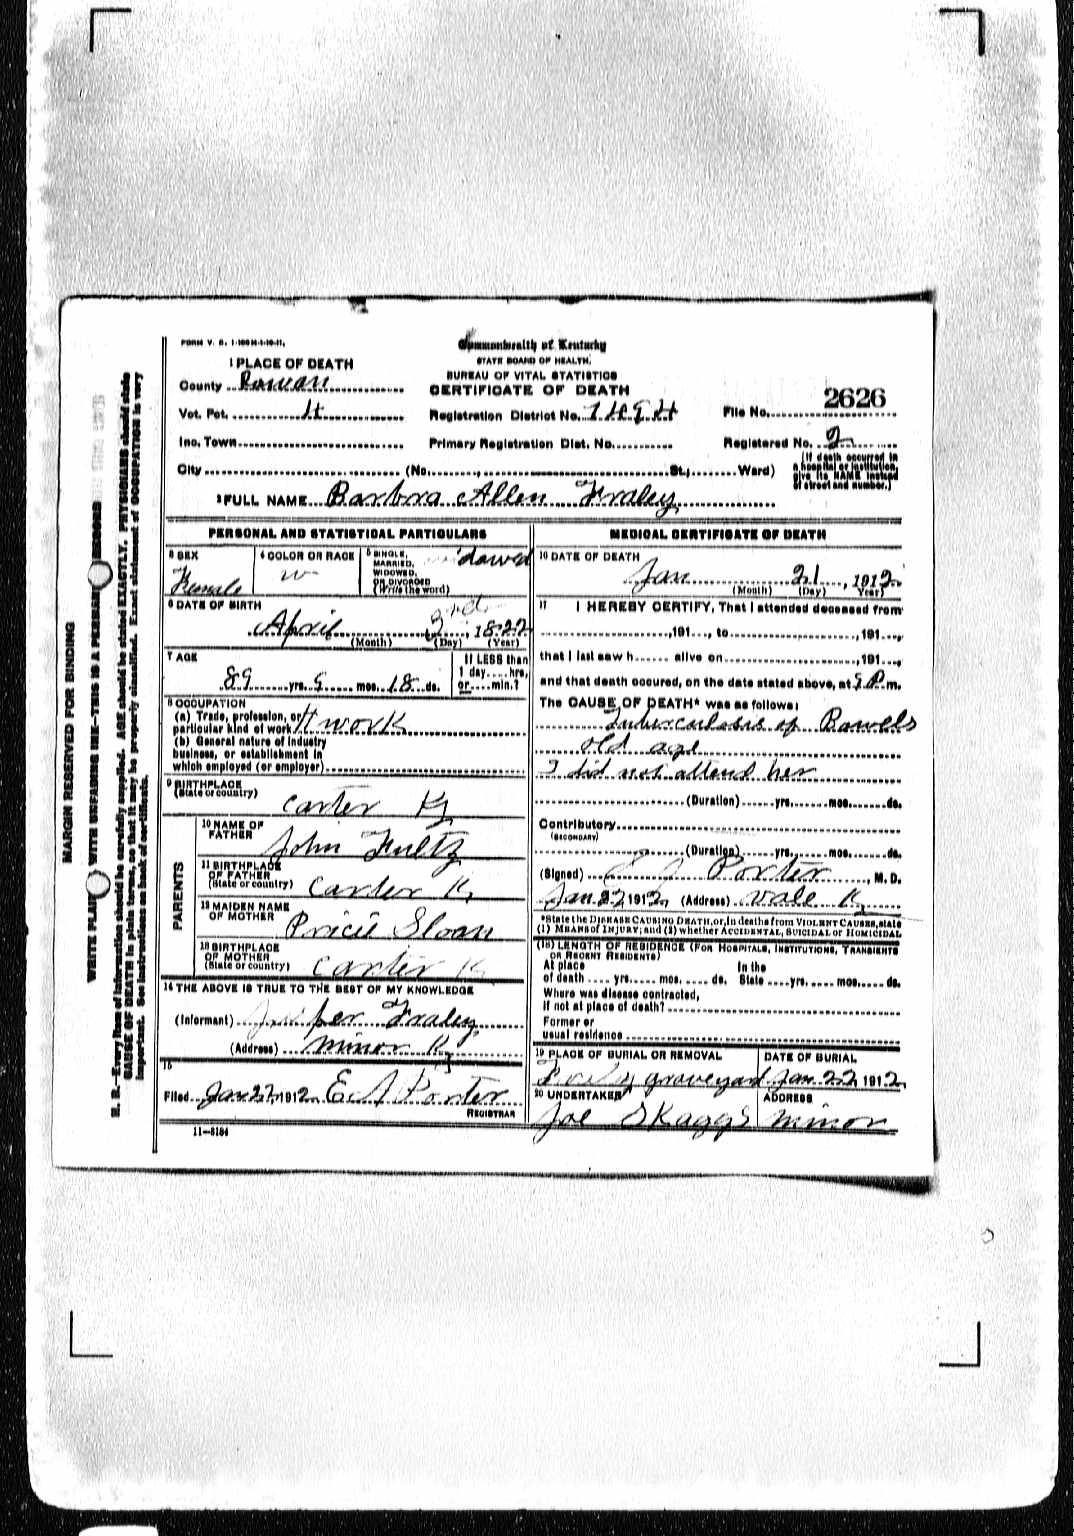 FORM V. S. 1-
Commonwealth of Kentucky
STATE BOARD OF HEALTH.
BUREAU OF VITAL STATISTICS
CERTIFICATE OF DEATH
1 PLACE OF DEATH
County Rowan
Vot. Pct. 4 Registration District No. File No. 2626
Inc. Town Primary Registration Dist. No. Registered No. 2
City (No. , St.; Ward) (If death occurred in a hospital or institution, give its NAME instead of street and number.)
2 FULL NAME Barbra Allen Fraley
PERSONAL AND STATISTICAL PARTICULARS
3 SEX Female
4 COLOR OR RACE w
5 SINGLE, MARRIED, WIDOWED, OR DIVORCED (Write the word)
6 DATE OF BIRTH
April , 1822
(Month) (Day) (Year)
7 AGE
89 yrs. mos. 18 ds.
If LESS than 1 day hrs. or min.?
8 OCCUPATION
(a) Trade, profession, or particular kind of work H work
(b) General nature of industry business, or establishment in which employed (or employer)
9 BIRTHPLACE (State or country) Carter Ky
PARENTS
10 NAME OF FATHER John Fultz
11 BIRTHPLACE OF FATHER (State or country) Carter K
12 MAIDEN NAME OF MOTHER Pricie Sloan
13 BIRTHPLACE OF MOTHER (State or country) Carter K
14 THE ABOVE IS TRUE TO THE BEST OF MY KNOWLEDGE
(Informant) Fraley
(Address) Minor Ky
15
Filed Jan 27, 1912 Porter
REGISTRAR
11-5184
MEDICAL CERTIFICATE OF DEATH
16 DATE OF DEATH
Jan 21, 1912
(Month) (Day) (Year)
17 I HEREBY CERTIFY, That I attended deceased from
, 191 , to , 191 ,
that I last saw h alive on , 191 ,
and that death occured, on the date stated above, at P m.
The CAUSE OF DEATH* was as follows:
Tuberculosis of Bowels
old age
I did not attend her
(Duration) yrs. mos. ds.
Contributory
(SECONDARY)
(Duration) yrs. mos. ds.
(Signed) Porter, M. D.
Jan 27 1912 (Address) Vale K
*State the DISEASE CAUSING DEATH, or, in deaths from VIOLENT CAUSES, state
(1) MEANS of INJURY; and (2) whether ACCIDENTAL, SUICIDAL or HOMICIDAL
(18) LENGTH OF RESIDENCE (FOR HOSPITALS, INSTITUTIONS, TRANSIENTS OR RECENT RESIDENTS)
At place of death yrs. mos. ds. In the State yrs. mos. ds.
Where was disease contracted,
If not at place of death?
Former or
usual residence
19 PLACE OF BURIAL OR REMOVAL graveyard
DATE OF BURIAL Jan 22, 1912
20 UNDERTAKER Joe Skaggs
ADDRESS Minor
MARGIN RESERVED FOR BINDING
WRITE PLAINLY WITH UNFADING INK—THIS IS A PERMANENT RECORD
N. B.—Every item of information should be carefully supplied. AGE should be stated EXACTLY. PHYSICIANS should state
CAUSE OF DEATH in plain terms, so that it may be properly classified. Exact statement of OCCUPATION is very
important. See instructions on back of certificate.